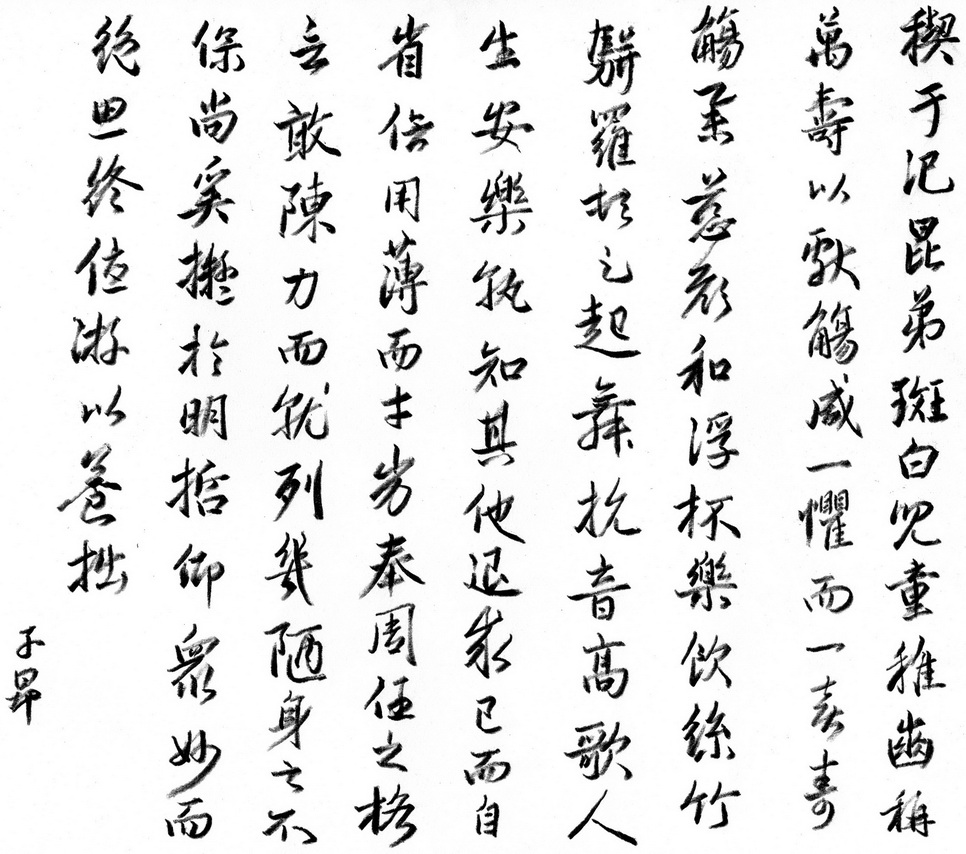 禊于汜昆弟斑白兒童稚齒稱
萬壽以獻觴咸一懼而一喜壽
觴舉慈顏和浮杯樂飲絲竹
駢羅頓足起舞抗音高歌人
生安樂孰知其他退求己而自
省信用薄而才劣奉周任之格
言敢陳力而就列幾陋身之不
保尚奚擬於明哲仰眾妙而
絕思終優游以養拙
子昂